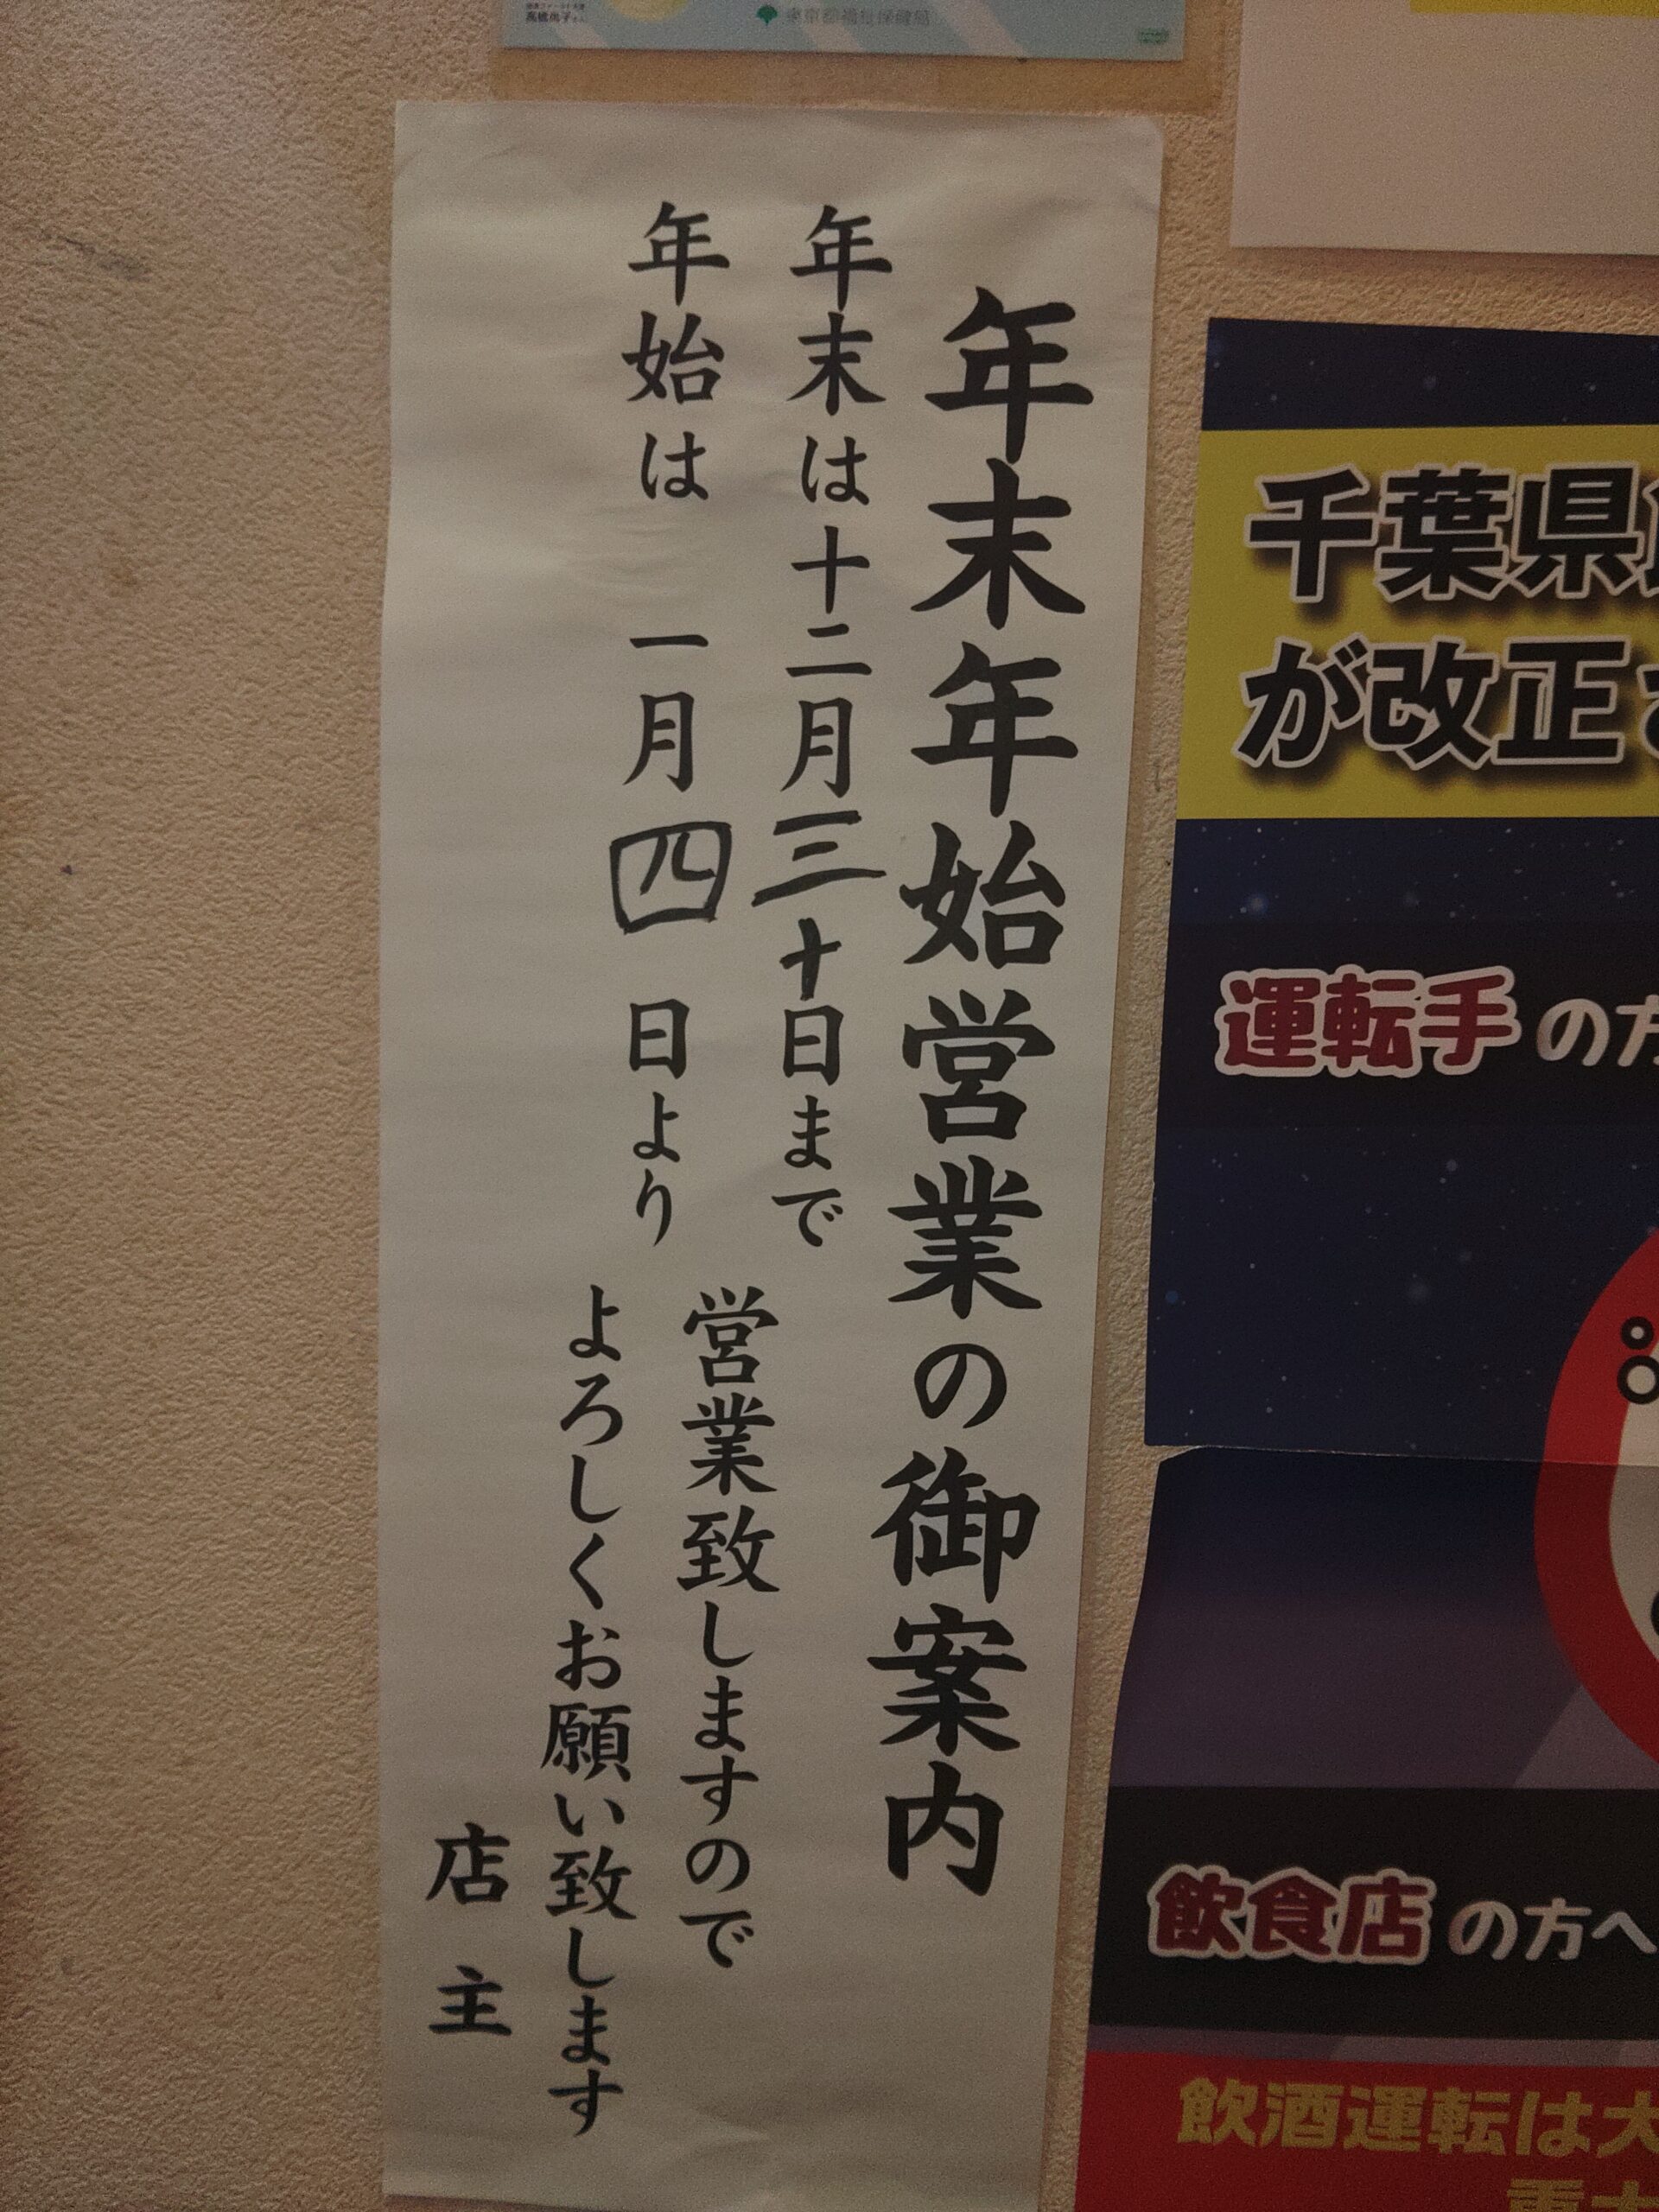 東京都福祉保健局
年末年始営業の御案内
年末は十二月三十日まで
年始は 一月四日より
営業致しますので
よろしくお願い致します
店主
千葉県
が改正
運転手の方
飲食店の方へ
飲酒運転は大